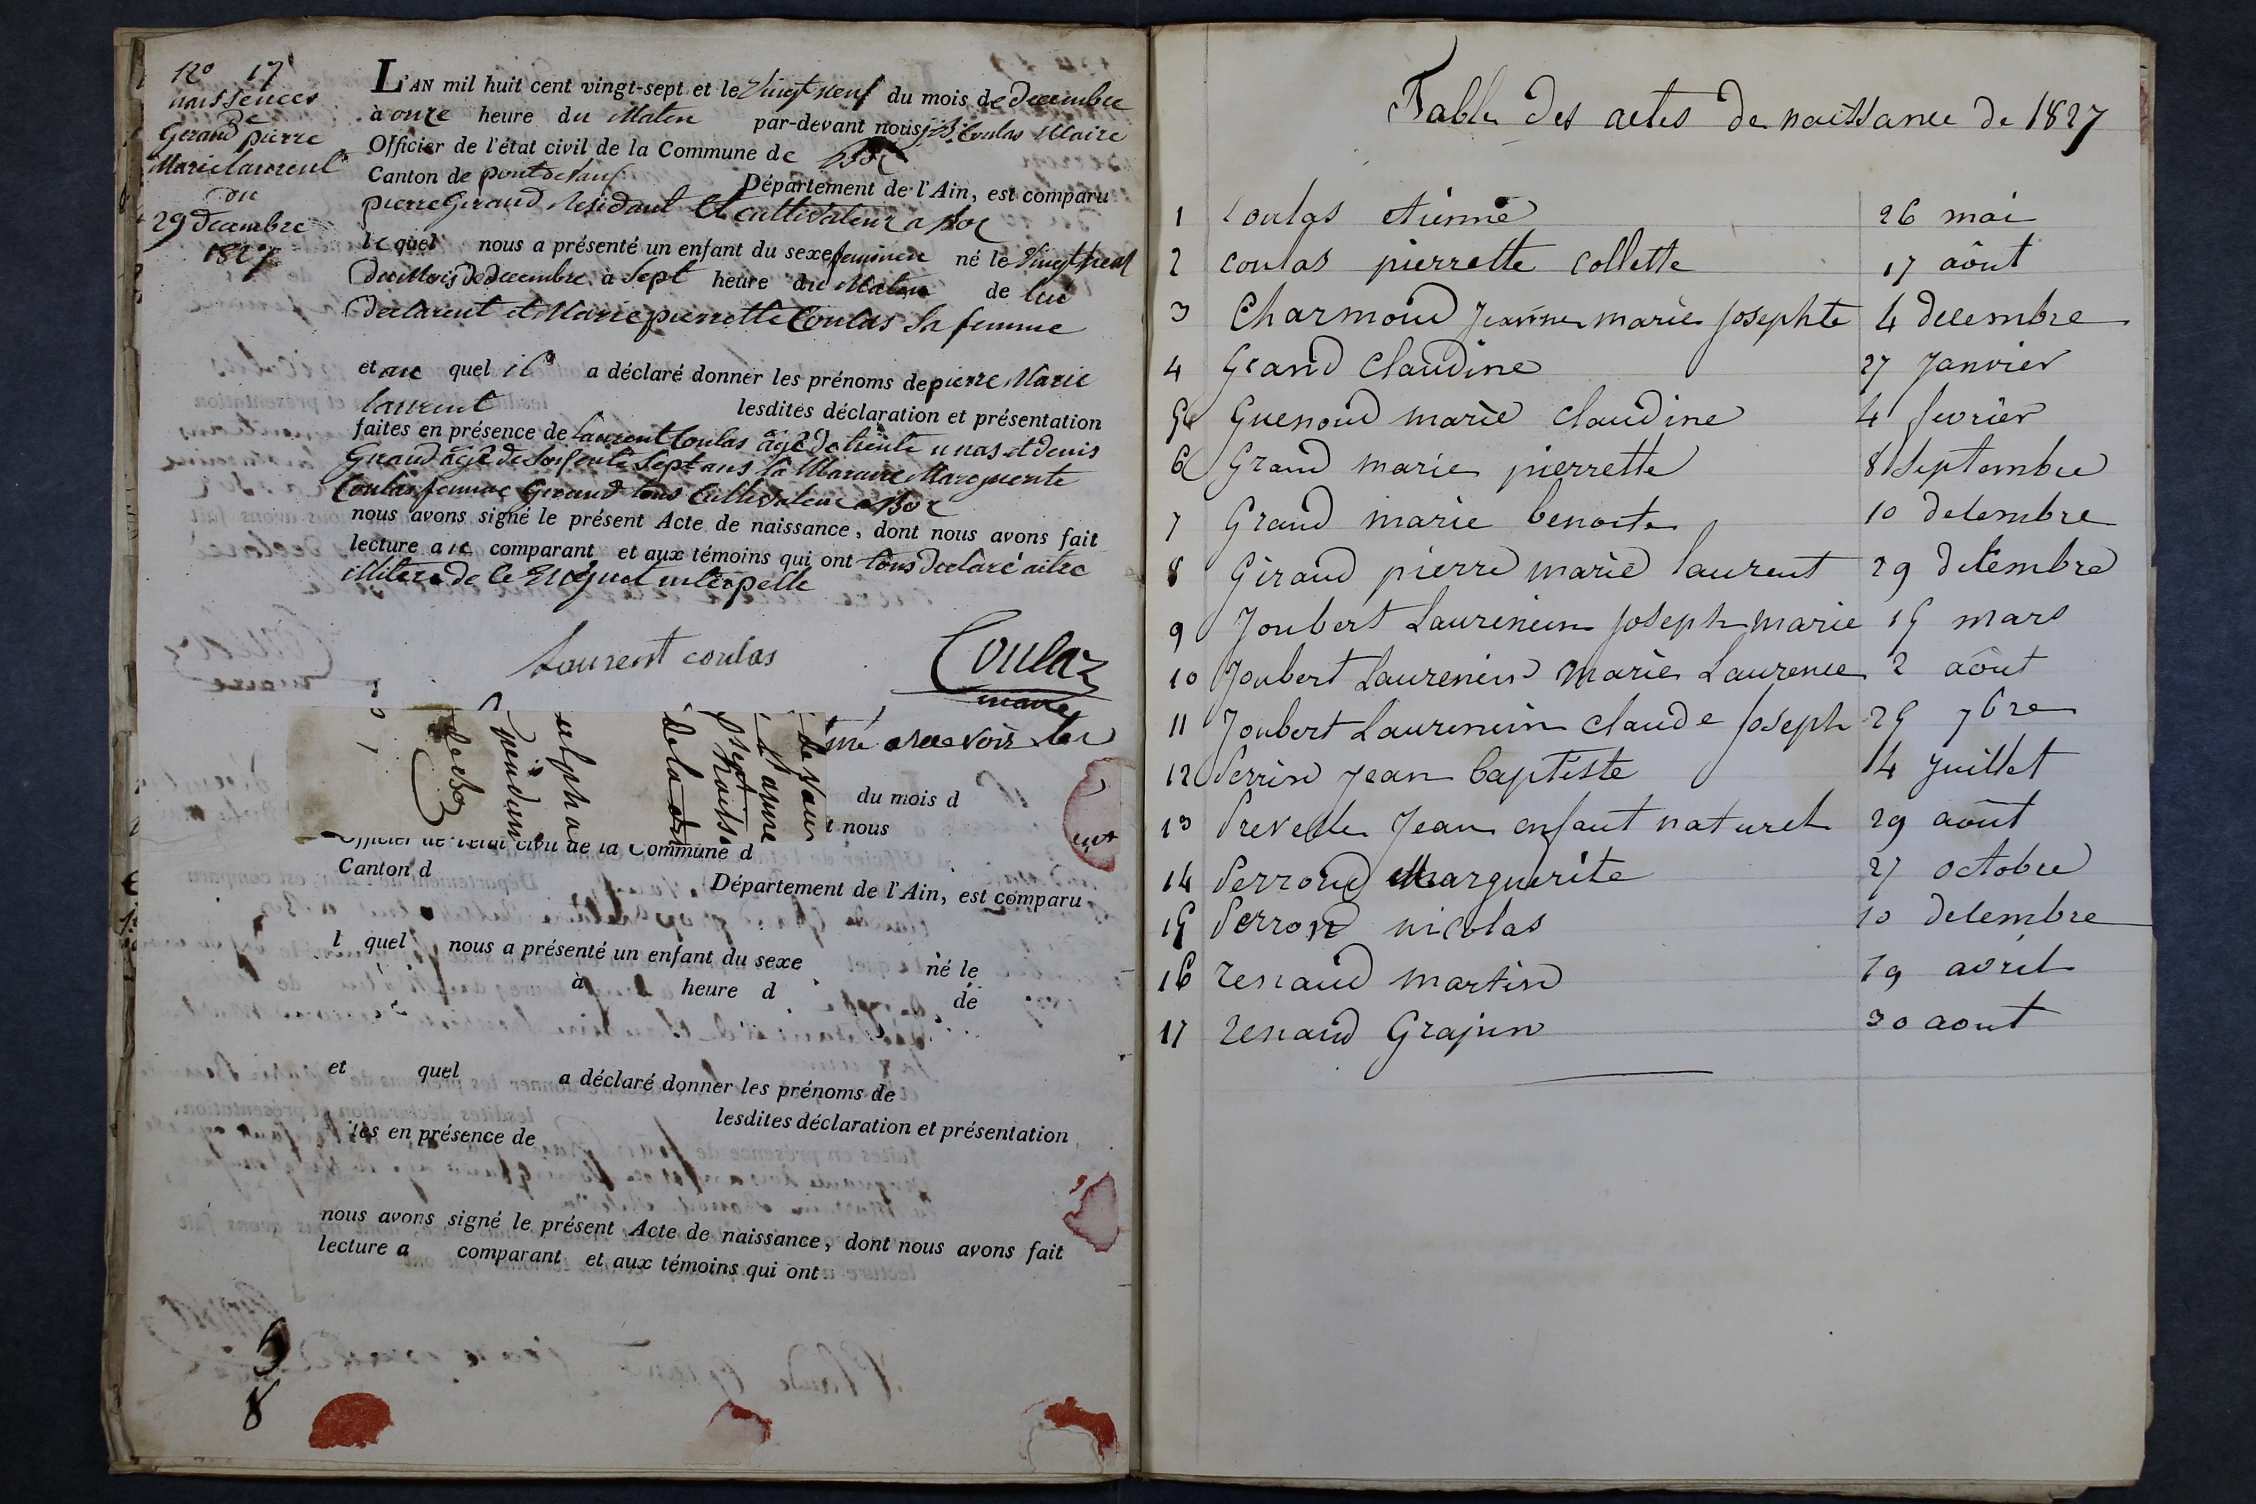 no 17
naissences
de
Geraud pierre
Marie laurent
du
29 decembre
1827
L'AN mil huit cent vingt-sept et le Vingt neuf du mois de decembre
à onze heure du Maten par-devant nous j.B. Coulas Maire
Officier de l'état civil de la Commune de Boz
Canton de pont de vaux Département de l'Ain, est comparu
pierre Geraud Residant Et cultivateur a Boz
le quel nous a présenté un enfant du sexe feminin né le Vingt neuf
du Mois de decembre à Sept heure du Maten de lui
declarent et Marie pierrette Coulas Sa femme
et au quel il a déclaré donner les prénoms de pierre Marie
laurent lesdites déclaration et présentation
faites en présence de laurent Coulas âgé de trente unas et denis
Geraud âgé de Soisente Sept ans la Maraine Marguerite
Coulas femme Geraud tous Cultivateur a Boz
nous avons signé le présent Acte de naissance, dont nous avons fait
lecture a le comparant et aux témoins qui ont tous declaré aitre
illitere de ce Enquet interpelle
Laurent coulas
Coulas
maire
du mois d
t nous
Officier de l'état civil de la Commune d
Canton d
Département de l'Ain, est comparu
l quel nous a présenté un enfant du sexe né le
à heure d de
et quel a déclaré donner les prénoms de
lesdites déclaration et présentation
tes en présence de
nous avons signé le présent Acte de naissance, dont nous avons fait
lecture a comparant et aux témoins qui ont
8
Table des actes de naissance de 1827
1 Coulas etienne 26 mai
2 coulas pierrette collette 17 aôut
3 Charmond Jeanne marie Josephte 4 decembre
4 Grand Claudine 27 Janvier
5 Guenoud marie claudine 4 fevrier
6 Grand marie pierrette 8 Septembre
7 Grand marie benoite 10 decembre
8 Giraud pierre marie laurent 29 decembre
9 Joubert Laurencin Joseph marie 15 mars
10 Joubert Laurencin Marie Laurence 2 aôut
11 Joubert Laurencin claude Joseph 25 7bre
12 Perrin Jean baptiste 14 Juillet
13 Prevelle Jean enfant naturel 29 août
14 Perroud Marguerite 27 octobre
15 Perroud nicolas 10 decembre
16 renaud martin 19 avril
17 renaud Grajun 30 aout